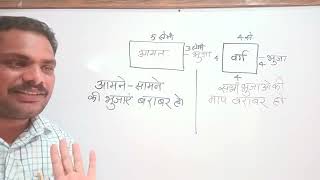 5 सेमी
आयत
3 सेमी
भुजा
आमने-सामने
की भुजाएं बराबर हो।
4 से
4
वर्ग
4
भुजा
4
सभी भुजाओ की
माप बराबर हो